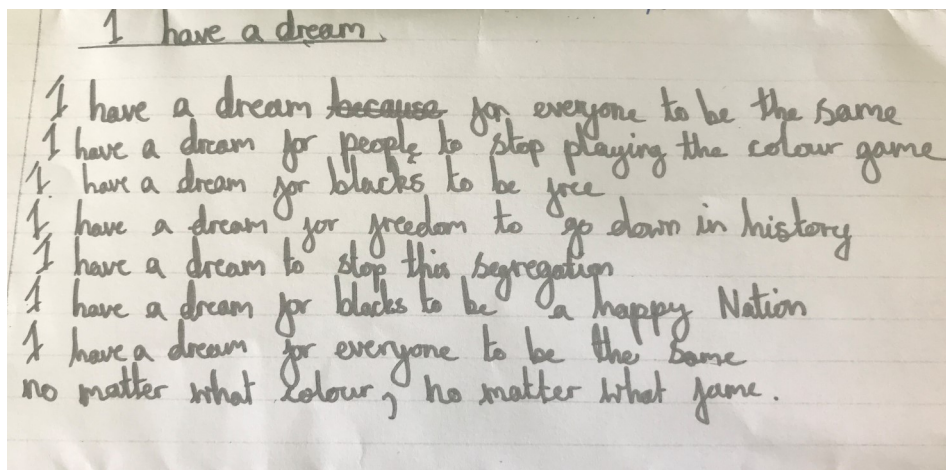 I have a dream.
I have a dream because for everyone to be the same
I have a dream for people to stop playing the colour game
I have a dream for blacks to be free
I have a dream for freedom to go down in history
I have a dream to stop this segregation
I have a dream for blacks to be a happy Nation
I have a dream for everyone to be the same
no matter what colour, no matter what fame.